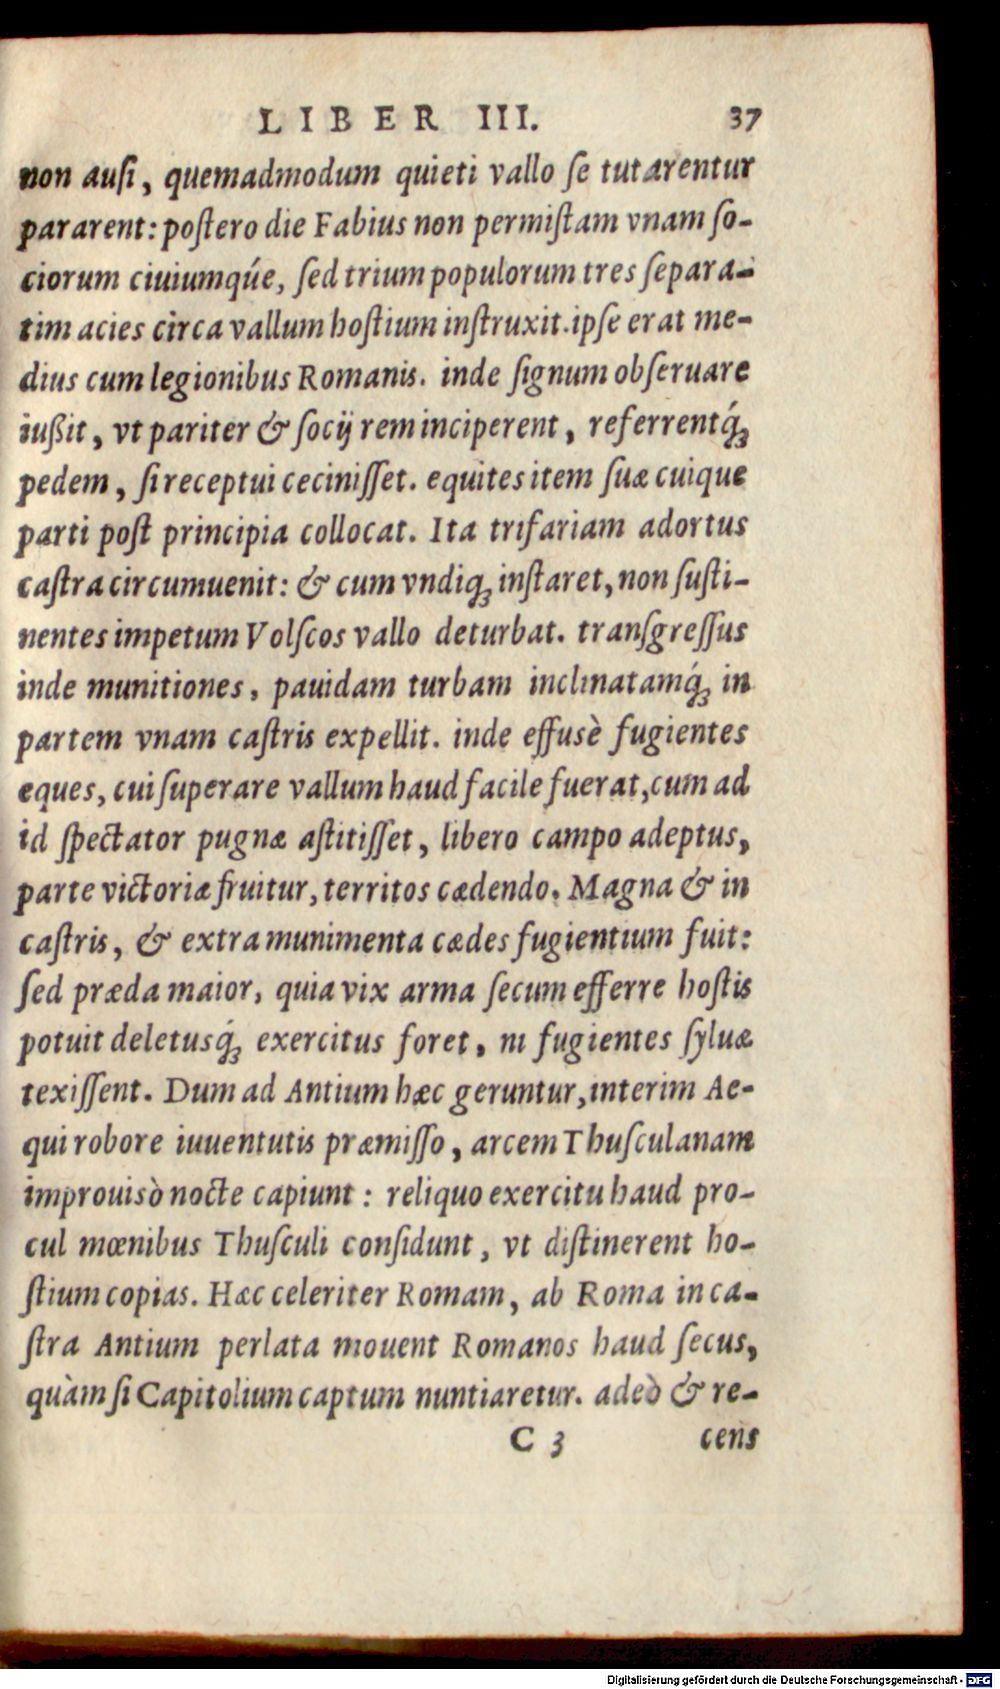 LIBER III. 37
non ausi, quemadmodum quieti vallo se tutarentur
pararent: postero die Fabius non permistam vnam so-
ciorum ciuiumqúe, sed trium populorum tres separa-
tim acies circa vallum hostium instruxit. ipse erat me-
dius cum legionibus Romanis. inde signum obseruare
iußit, vt pariter & socij rem inciperent, referrentq́ꝫ
pedem, si receptui cecinisset. equites item suæ cuique
parti post principia collocat. Ita trifariam adortus
castra circumuenit: & cum vndiqꝫ instaret, non susti-
nentes impetum Volscos vallo deturbat. transgressus
inde munitiones, pauidam turbam inclinatamq́ꝫ in
partem vnam castris expellit. inde effusè fugientes
eques, cui superare vallum haud facile fuerat, cum ad
id spectator pugnæ astitisset, libero campo adeptus,
parte victoriæ fruitur, territos cædendo. Magna & in
castris, & extra munimenta cædes fugientium fuit:
sed præda maior, quia vix arma secum efferre hostis
potuit deletusq́ꝫ exercitus foret, ni fugientes syluæ
texissent. Dum ad Antium hæc geruntur, interim Ae-
qui robore iuuentutis præmisso, arcem Thusculanam
improuisò nocte capiunt: reliquo exercitu haud pro-
cul mœnibus Thusculi considunt, vt distinerent ho-
stium copias. Hæc celeriter Romam, ab Roma in ca-
stra Antium perlata mouent Romanos haud secus,
quàm si Capitolium captum nuntiaretur. adeò & re-
C 3 cens
Digitalisierung gefördert durch die Deutsche Forschungsgemeinschaft - DFG